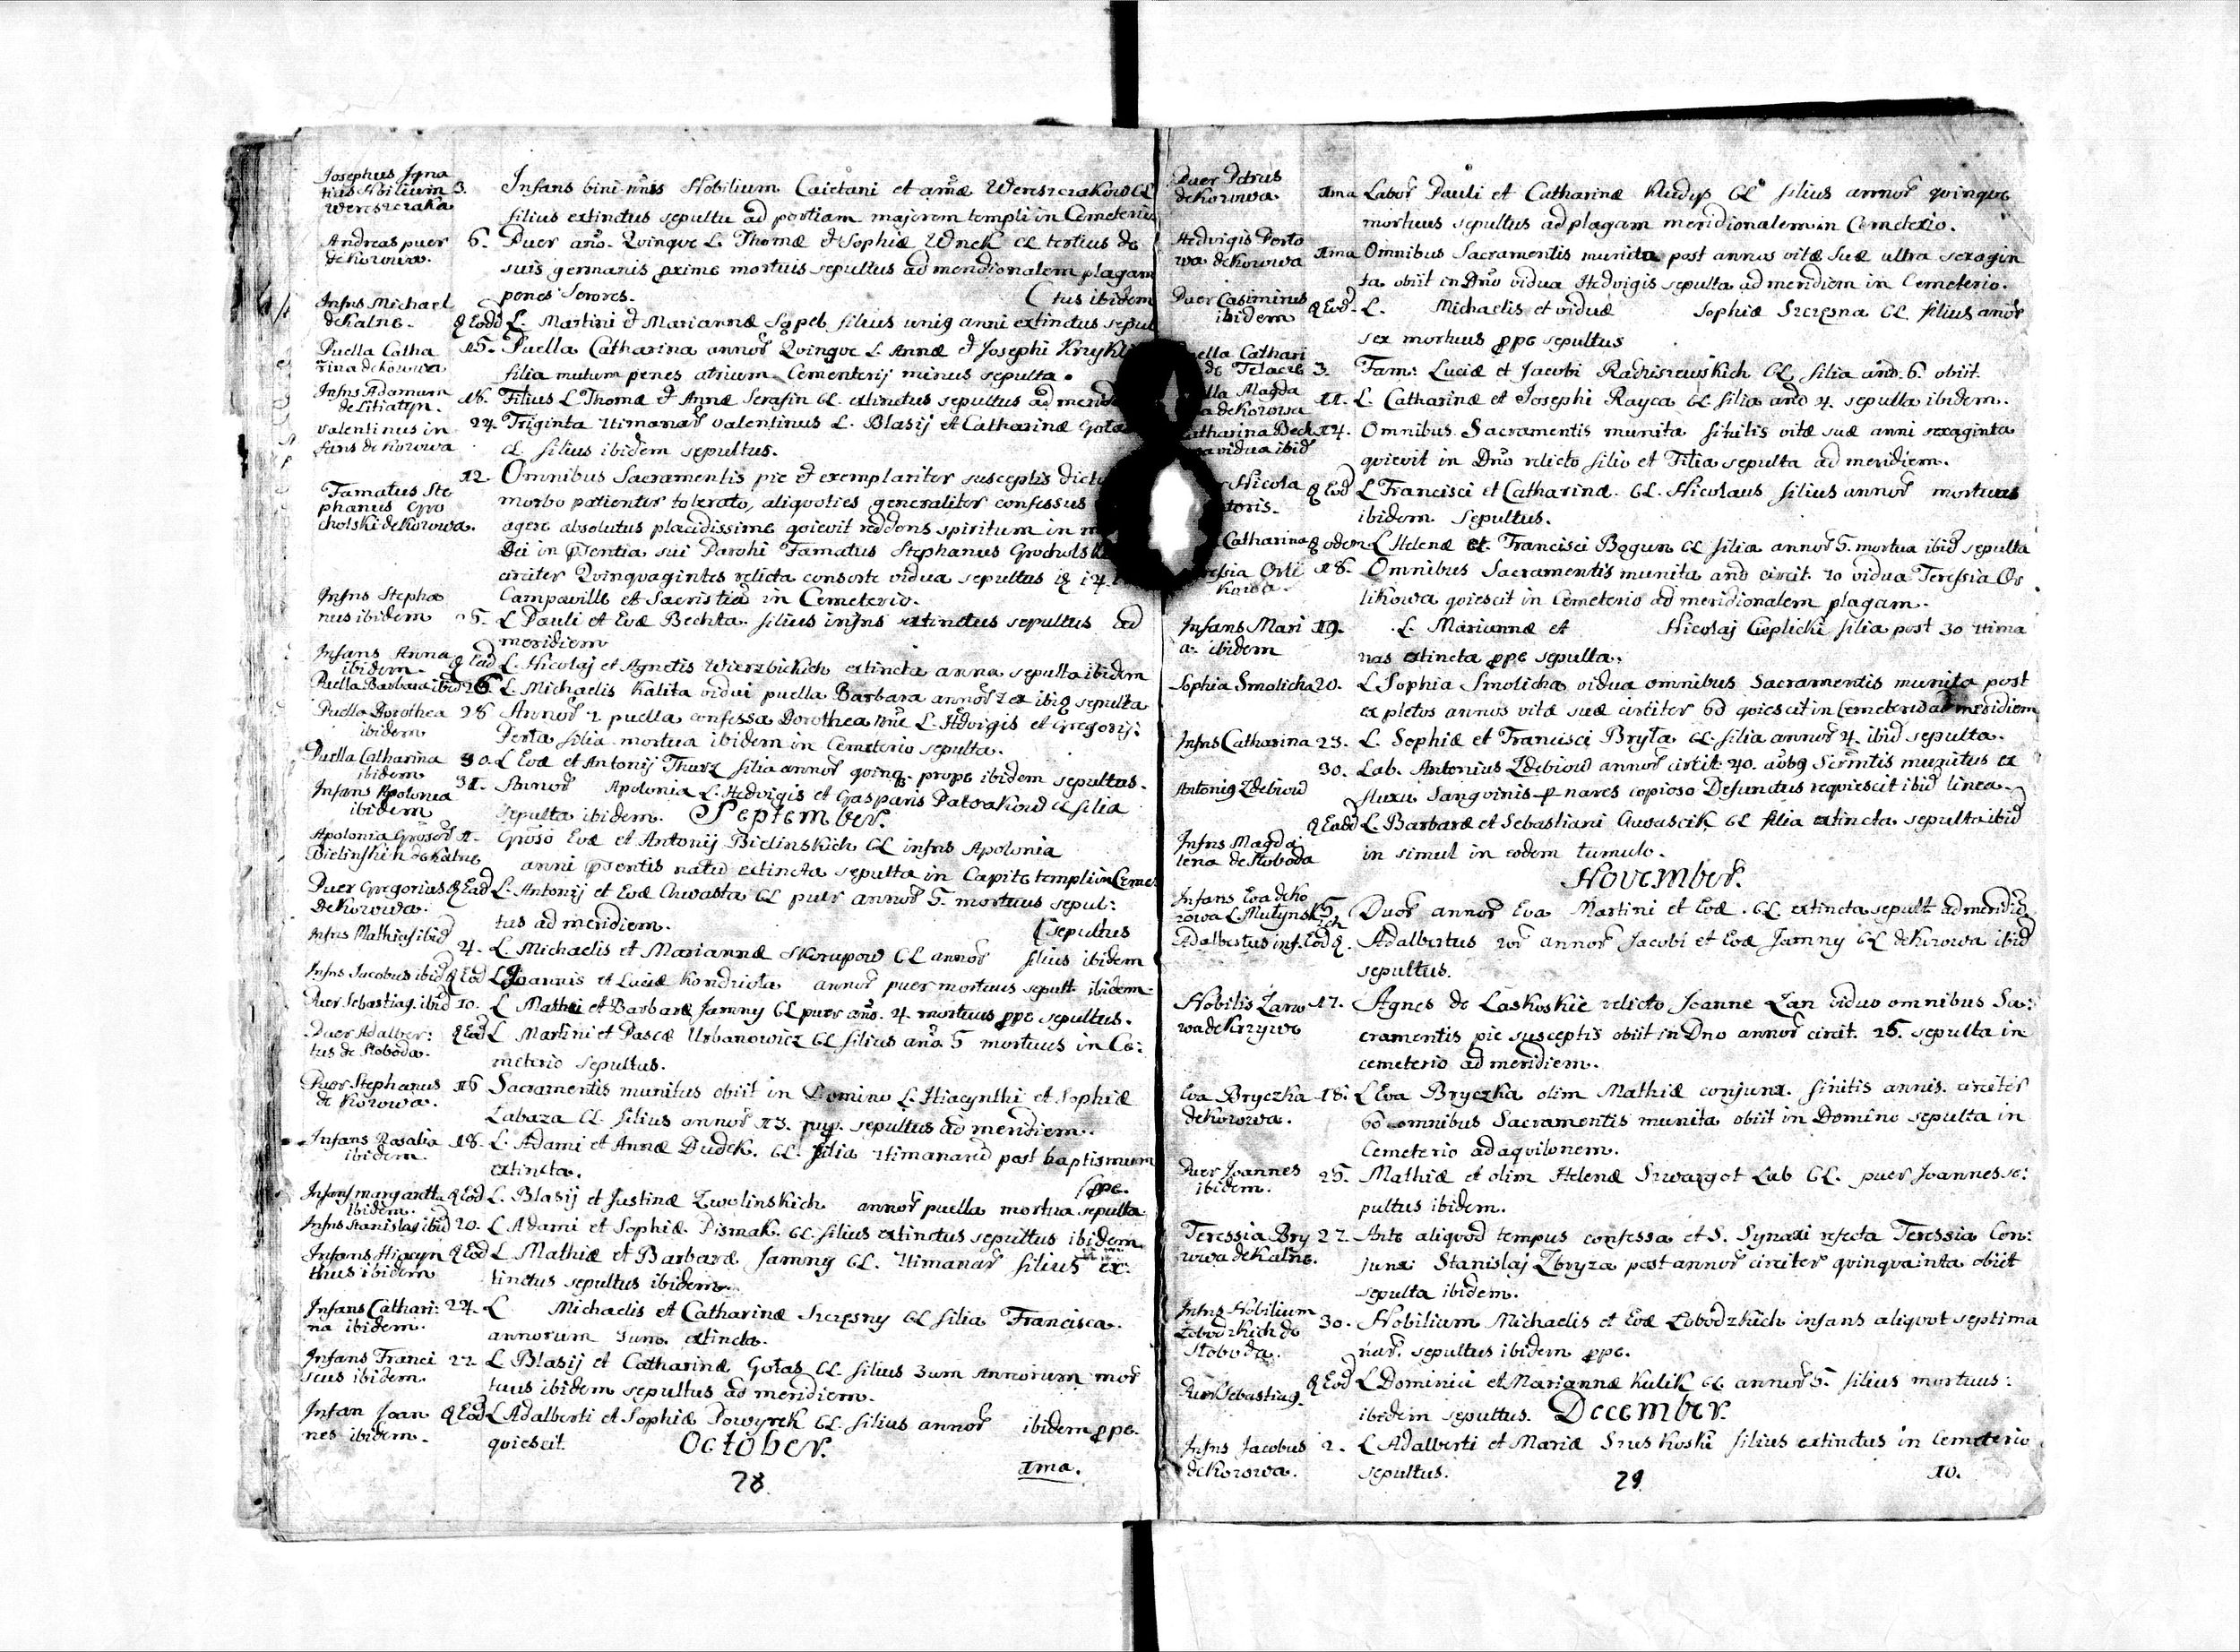 Josephus Igna
tius Nobilium 3. Infans bini nñis Nobilium Caietani et añæ Wereszczakow CL
Wereszczaka filius extinctus sepultu ad portiam majorem templi in Cemeterio
Andreas puer 6. Puer año. Quinque L. Thomæ et Sophiæ Wnek CL tertius de
de Korowa. suis germanis prime mortuis sepultus ad meridionalem plagam
penes Sorores. (tus ibidem
Infns Michael
de Kalne. & Eod L. Martini et Mariannæ Sopel filius uniq anni extinctus sepul
Puella Catha 15. Puella Catharina annor Quinque L. Annæ et Josephi
rina de Korowa filia mutum penes atrium Cementerij minus sepulta.
Infns Adamum
de Litiatyn. 18. Filius L Thomæ et Annæ Serafin CL. extinctus sepultus ad
Valentinus in 24. Triginta 7timanar Valentinus L. Blasij et Catharinæ
fans de Korowa CL filius ibidem sepultus.
12. Omnibus Sacramentis pie et exemplariter susceptis
Famatus Ste morbo patienter tolerato, aliquoties generaliter confessus
phanus Gro
cholski de Korowa. agere absolutus placidissime qoievit reddens spiritum in
Dei in psentia sui Parohi Famatus Stephanus
circiter Quinquagintes relicta consorte vidua sepultus
Infns Stepha Campanille et Sacristia in Cemeterio.
nus ibidem 5. L Pauli et Evæ Bechta filius infns extinctus sepultus ad
meridiem
Infans Anna
ibidem. & Eod L. Nicolaj et Agnetis Wierzbickich extincta anna sepulta ibidem
Puella Barbara ibid 26 L. Michaelis Kalita vidui puella Barbara annor ibid sepulta
Puella Dorothea 28 Annor 2 puella confessa Dorothea L. Hedvigis et Gregorij
ibidem Perta filia mortua ibidem in Cemeterio sepulta.
Puella Catharina 30. L Evæ et Antonij Thurz filia annor qoinq prope ibidem sepultas.
ibidem
Infans Apolonia 31. Annor Apolonia L. Hedvigis et Gasparis Patrakowd CL filia
ibidem sepulta ibidem. September.
Apolonia Groser 1. Groso Evæ et Antonij Bielinskich CL infns Apolonia
Bielinskich de Kalne anni psentis natu extincta sepulta in Capite templi in Ceme
Puer Gregorius & Eod L. Antonij et Evæ Chwasta CL puer annor 5. mortuus sepul:
de Korowa. tus ad meridiem. (sepultus
Infns Mathias ibid 4. L. Michaelis et Mariannæ Skorupow CL annor filius ibidem
Infns Jacobus ibid & Eod L Joannis et Luciæ Kondriola annor puer mortuus sepult. ibidem
Puer Sebastiaq. ibid 10. L Mathæi et Barbaræ Jamny CL puer año. 4 mortuus ppe sepultus.
Puer Adalber: & Eod L Martini et Pascæ Urbanowicz CL filius año 5 mortuus in Ce:
tus de Sloboda. meterio sepultus.
Puer Stephanus 16 Sacramentis munitus obiit in Domino L. Hiacynthi et Sophiæ
de Korowa. Labaza CL. filius annor 13. sepultus ad meridiem.
Infans Rosalia 18. L. Adami et Annæ Dudek. CL. filia 7timanard post baptismum
ibidem. extincta.
(ppe.
Infans margaretta & Eod L. Blasij et Justinæ Zwolinskich annor puella mortua sepulta
ibidem.
Infns Stanislaq ibid 20. L Adami et Sophiæ Pismak. CL. filius extinctus sepultus ibidem
Infans Hiacyn & Eod L Mathiæ et Barbaræ Jamny CL. 7timanar filius ex:
thus ibidem tinctus sepultus ibidem.
Infans Cathari: 24. L Michaelis et Catharinæ Szczęsny CL filia Francisca.
na ibidem. annorum 3um extincta.
Infans Franci 22 L Blasij et Catharinæ Gołas CL. filius 3um Annorum mor
scus ibidem. tuus ibidem sepultus ad meridiem.
Infan Joan & Eod L Adalberti et Sophiæ Powyrek CL. filius annor ibidem ppe.
nes ibidem. qoiescit. October.
28 1ma.
Puer Petrus
de Korowa 1ma Labor Pauli et Catharinæ Kudys CL filius annor qoinque
mortuus sepultus ad plagam meridionalem in Cemeterio.
Hedvigis Perto
wa de Korowa 1ma Omnibus Sacramentis munita post annos vitæ suæ ultra sexagin
ta obiit in Dño vidua Hedvigis sepulta ad meridiem in Cemeterio.
Puer Casimirus
ibidem & Eod. L. Michaelis et viduæ Sophiæ Szczęsna CL filius anor
sex mortuus ppe sepultus
Puella Cathari
de Telacze 3. Fam: Luciæ et Jacobi Raciszewskich CL filia anõ. 6. obiit.
Puella Magda
a de Korowa 11. L. Catharinæ et Josephi Rayca CL filia anõ 4. sepulta ibidem.
Catharina Bech 14. Omnibus Sacramentis munita finitis vitæ suæ anni sexaginta
a vidua ibid qoievit in Dño relicto filio et Filia sepulta ad meridiem.
Nicola & Eod L Francisci et Catharinæ. CL. Nicolaus filius annor mortuus
ibidem Sepultus.
Catharina & odem L Helenæ et Francisci Bogun CL filia annor 5. mortua ibid sepulta
Orli 18. Omnibus Sacramentis munita anõ circit. 70 vidua Teressia Or
kowa. likowa qoiescit in Cemeterio ad meridionalem plagam.
Infans Mari 19. L. Mariannæ et Nicolaj Cieplicki filia post 30 7tima
a ibidem nas extincta ppe sepulta.
Sophia Smolicha 20. L Sophia Smolicha vidua omnibus Sacramentis munita post
expletos annos vitæ suæ circiter 60 qoiescit in Cemeterio ad meridiem
Infns Catharina 23. L. Sophiæ et Francisci Bryła CL. filia annor 4. ibid sepulta.
30. Lab. Antonius Zdebiowd annor circit 40. aũbq Scrmtis munitus ex
Antoniq Zdebiowd fluxu Sanguinis p nares copioso Defunctus reqviescit ibid linea.
& Eod L Barbaræ et Sebastiani Chwascik CL filia extincta sepulta ibid
Infns Magda
lena de Sloboda in simul in eodem tumulo.
November.
Infans Eva de Ko
rowa L Mutynskich 5 Duor annor Eva Martini et Evæ. CL. extincta sepult ad meridie
Adalbertus inf. Eod &. Adalbertus 2or annor Jacobi et Evæ Jamny CL de Korowa ibid
sepultus.
Nobilis Zano 17. Agnes de Laskoskie relicto Joanne Zan viduo omnibus Sa:
wa de Krzywe cramentis pie susceptis obiit in Dno annor circit. 25. sepulta in
cemeterio ad meridiem.
Eva Bryczka 18. L Eva Bryczka olim Mathiæ conjunx. finitis annis. circiter
de Korowa. 60 omnibus Sacramentis munita obiit in Domino sepulta in
Cemeterio ad aqvilonem.
Puer Joannes
ibidem. 25. Mathiæ et olim Helenæ Szwargot Lab CL. puer Joannes se:
pultus ibidem.
Teressia Bry 27. Ante aliqvod tempus confessa et S. Synaxi refecta Teressia Con:
wa de Kalne. junx Stanislaj Zbryza post annor circiter qvinqvainta obiit
sepulta ibidem.
Infns Nobilium
Łobodzkich de 30. Nobilium Michaelis et Evæ Łobodzkich infans aliqvot septima
Sloboda. nar. sepultus ibidem ppe.
Puer Sebastiaq. & Eod L Dominici et Mariannæ Kulik CL annor 5. filius mortuus:
ibidem sepultus. December.
Infns Jacobus 2. L Adalberti et Mariæ Sruskoski filius extinctus in Cemeterio
de Korowa. sepultus.
29 10.